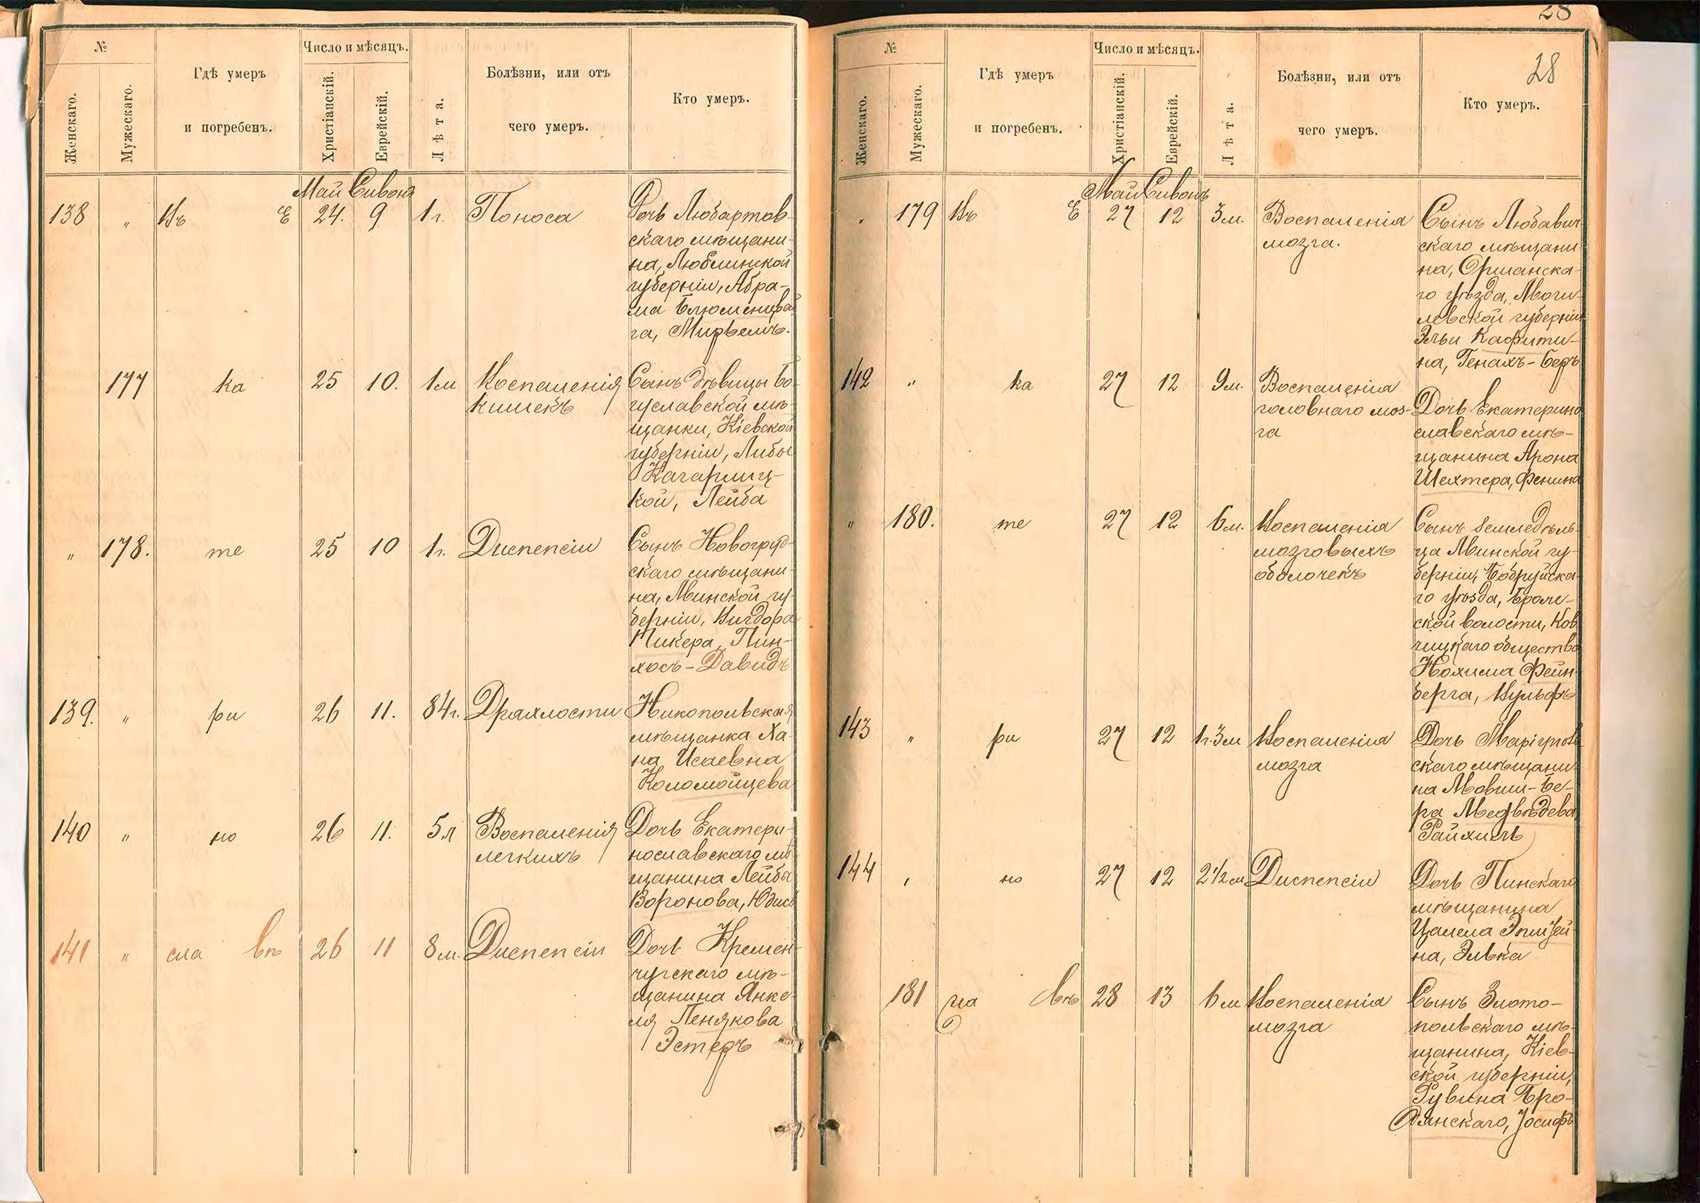 №
Число и мѣсяцъ.
Женскаго.
Мужескаго.
Гдѣ умеръ
и погребенъ.
Христіанскій.
Еврейскій.
Лѣта.
Болѣзни, или отъ
чего умеръ.
Кто умеръ.
Май Сивонъ
138 " Въ Е 24. 9 1 г. Поноса
Дочь Любартов-
скаго мѣщани-
на, Люблинской
губерніи, Абра-
ма
га,
177 ка 25 10. 1 м Воспаленія
кишекъ
Сынъ дѣвицы Бо-
гуславской мѣ-
щанки, Кіевской
губерніи, Либы
Кагарлиц-
кой, Лейба
" 178. те 25 10 1 г. Диспепсіи
Сынъ Новогруд-
скаго мѣщани-
на, Минской гу-
берніи, Вигдора
Пикера, Пин-
хосъ-Давидъ
139. " ри 26 11. 84 г. Дряхлости
Никопольская
мѣщанка Ха-
на Исаевна
Коломойцева
140 " но 26 11. 5 л Воспаленія
легкихъ
Дочь Екатери-
нославскаго мѣ-
щанина Лейбы
Воронова,
141 " сла вѣ 26 11 8 м. Диспепсіи
Дочь Кремен-
чугскаго мѣ-
щанина Янке-
ля Пенякова
Эстеръ
28
28
№
Число и мѣсяцъ.
Женскаго.
Мужескаго.
Гдѣ умеръ
и погребенъ.
Христіанскій.
Еврейскій.
Лѣта.
Болѣзни, или отъ
чего умеръ.
Кто умеръ.
Май Сивонъ
" 179 Въ Е 27 12 3 м. Воспаленія
мозга.
Сынъ Любавич-
скаго мѣщани-
на, Оршанска-
го уѣзда, Моги-
левской губерніи
Эльи Кафити-
на, Генахъ-Беръ
142 " ка 27 12 9 м. Воспаленія
головнаго моз-
га
Дочь Екатерино-
славскаго мѣ-
щанина Арона
Шехтера, Фенина
" 180. те 27 12 6 м. Воспаленія
мозговыхъ
оболочекъ
Сынъ земледѣль-
ца Минской гу-
берніи, Бобруйска-
го уѣзда,
ской волости, Ков-
чицкаго общества
Нохима Фейн-
берга, Вульфъ
143 " ри 27 12 1 г. 3 м Воспаленія
мозга
Дочь Маріупол-
скаго мѣщани-
на Мовши-Бе-
ра Медвѣдева
Райхиль
144 " но 27 12 2 1/2 м Диспепсіи
Дочь Пинскаго
мѣщанина
на, Элька
181 вѣ 28 13 6 м Воспаленія
мозга
Сынъ Злото-
польскаго мѣ-
щанина, Кіев-
ской губерніи,
Рувина Бро-
дянскаго, Іосифъ